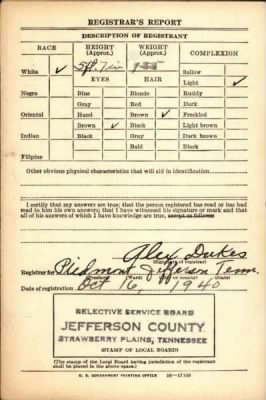 REGISTRAR'S REPORT
DESCRIPTION OF REGISTRANT
RACE HEIGHT (Approx.) WEIGHT (Approx.) COMPLEXION
White ✓ 5ft. 7in Sallow
EYES HAIR Light ✓
Negro Blue Blonde Ruddy
Gray Red Dark
Oriental Hazel Brown ✓ Freckled
Brown ✓ Black Light brown
Indian Black Gray Dark brown
Bald Black
Filipino
Other obvious physical characteristics that will aid in identification
I certify that my answers are true; that the person registered has read or has had
read to him his own answers; that I have witnessed his signature or mark and that
all of his answers of which I have knowledge are true, except as follows
Alex Dukes
(Signature of registrar)
Registrar for Piedmont Jefferson Tenn.
(Precinct) (Ward) (City or county) (State)
Date of registration Oct 16, 1940
SELECTIVE SERVICE BOARD
JEFFERSON COUNTY
STRAWBERRY PLAINS, TENNESSEE
(STAMP OF LOCAL BOARD)
(The stamp of the Local Board having jurisdiction of the registrant
shall be placed in the above space.)
U. S. GOVERNMENT PRINTING OFFICE 16—17105